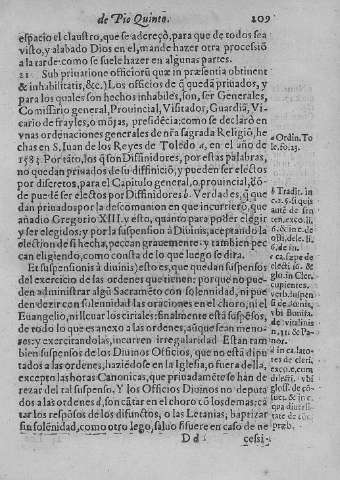 de Pio Quinto. 209
espacio el claustro, que se adereçò, para que de todos sea
visto, y alabado Dios en el, mande hazer otra processiõ
a la tarde como se suele hazer en algunas partes.
21 Sub priuatione officiorũ quæ in præsentia obtinent
& inhabilitatis, &c.) Los officios de q̃ quedã priuados, y
para los quales son hechos inhabiles, son, ser Generales,
Comissario general, Prouincial, Visitador, Guardiã, Vi-
cario de frayles, o mõjas, presidẽcia: como se declarò en
vnas ordenaciones generales de nr̃a sagrada Religiõ, he
chas en S. Iuan de los Reyes de Toledo a, en el año de
1583. Por tãto, los q̃ son Diffinidores, por estas palabras,
no quedan priuados de su diffiniciõ, y pueden ser electos
por discretos, para el Capitulo general, o prouincial, dõ-
de puedẽ ser electos por Diffinidores b. Verdad es, q̃ que
dan priuados por la descomunion en que incurrierõ, que
añadio Gregorio XIII. y esto, quanto para poder elegir
y ser elegidos: y por la suspension à Diuinis, aceptando la
election de si hecha, peccan grauemente: y tambien pec
can eligiendo, como consta de lo que luego se dira.
Et suspensionis à diuinis) esto es, que quedan suspensos
del exercicio de las ordenes que tienen: porque no pue-
den administrar algũ Sacramẽto con solennidad, ni pue
den dezir con solennidad las oraciones en el choro, ni el
Euangelio, ni lleuar los ciriales: finalmente està suspẽsos,
de todo lo que es anexo a las ordenes, aũque sean meno-
res: y exercitandolas, incurren irregularidad. Estan tam
bien suspensos de los Diuinos Officios, que no està dipu
tados a las ordenes, haziẽdose en la Iglesia, o fuera della,
excepto las horas Canonicas, que priuadamẽte se hãn de
rezar del tal suspenso. Y los Officios Diuinos no deputa
dos a las ordenes d, son cãtar en el choro cõ los demas: cã
tar los respõsos de los difunctos, o las Letanias; baptizar
sin solẽnidad, como otro lego, saluo si fuere en caso de ne
D d cessi-
a Ordin. To
le. fo. 23.
b Tradit. in
c. 2. §. si quis
autẽ de sin
ten. exco. li.
6. & in c. de
offi. dele. li.
6. de im.
c ca. sæpe de
electi. & glo. in Cler.
cupientes.
verb. suspen
si de simis,
vbi Bonifa.
de vitalinis
n. 31. & Pa-
nor.
d in ca. lato-
res de cleri.
exco. mi. di.
vbi
gloss. de cõ-
suet. & in c.
qua diuersi-
tate de con.
præb.